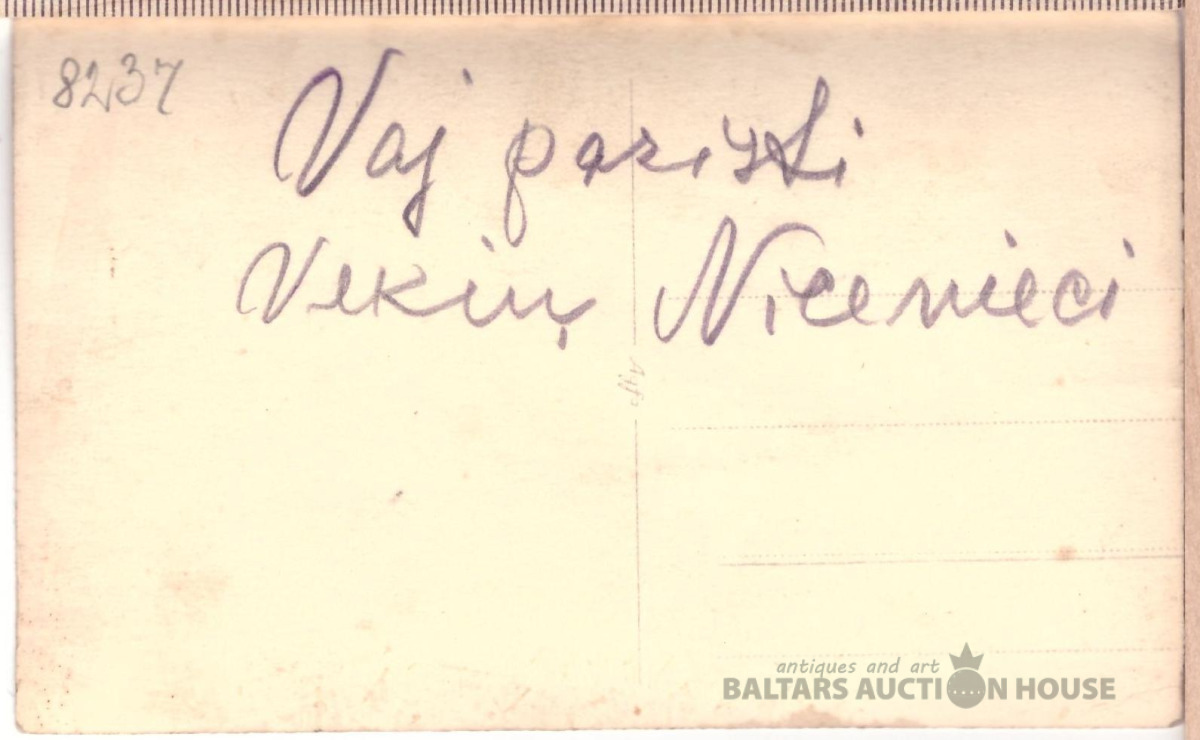 8237
Vaj pazisti
Vekiņ Nicenieci
Agfa
antiques and art
BALTARS AUCTION HOUSE